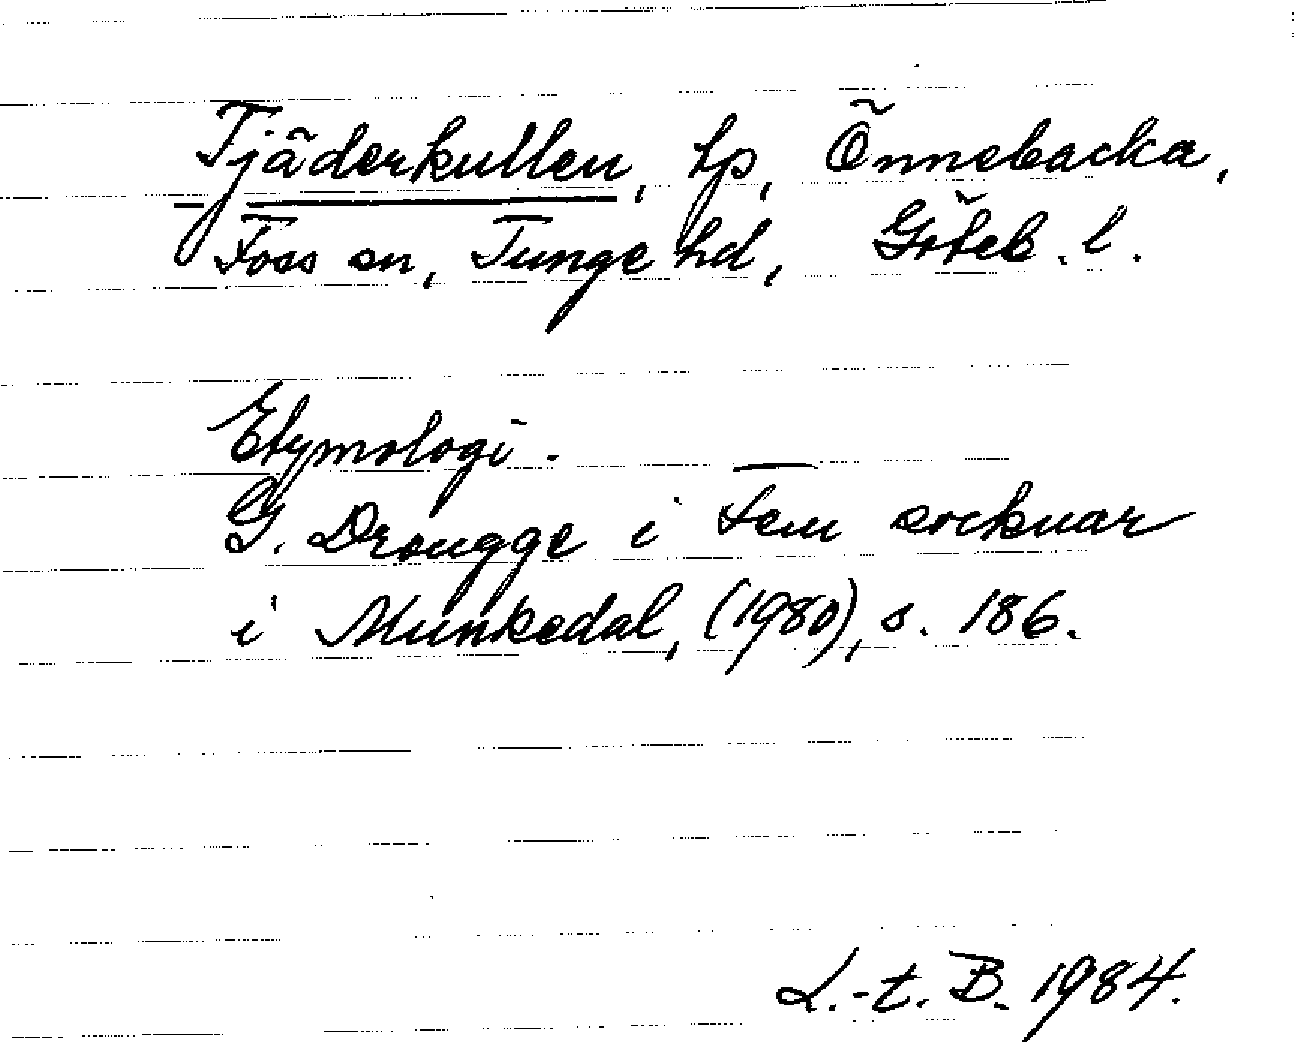 Tjäderkullen, tp, Önnebacka,
Foss sn, Tunge hd, Göteb. l.
Etymologi.
G. Drougge i Fem socknar
i Munkedal, (1980), s. 186.
L.-t. B. 1984.